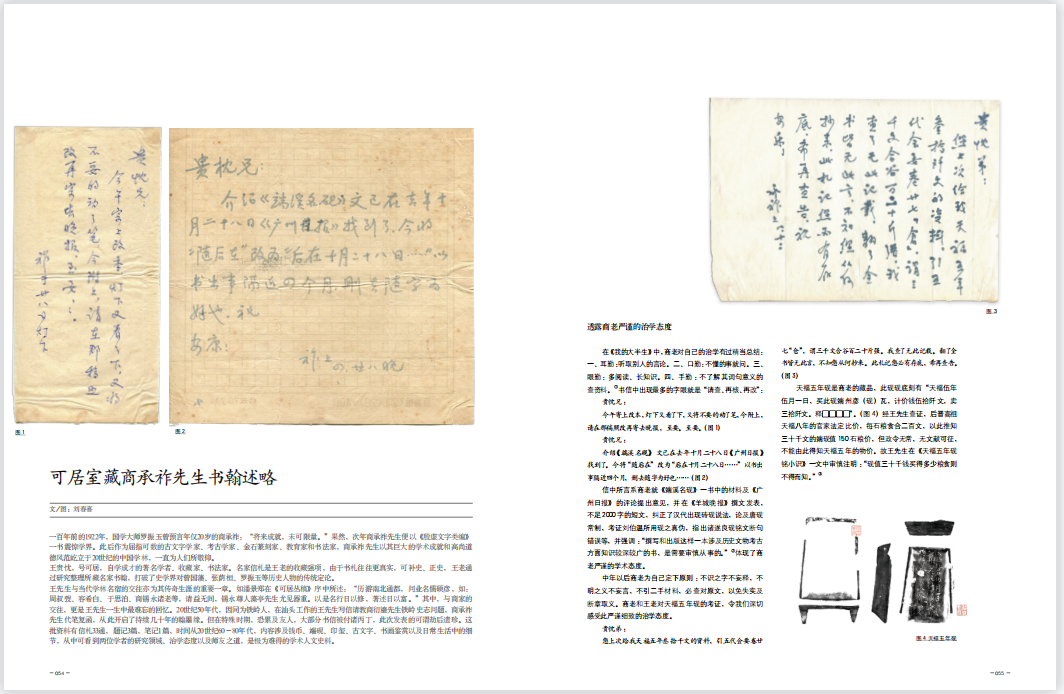 贵忱兄：
今午寄上改本，灯下又看了下，又将
不妥的动了笔，今附上，请在那稿照
改再寄去晚报，至要。
图 1
贵忱兄：
介绍《端溪名砚》文已在去年十
月二十八日《广州日报》找到了。今将
“随后在”改为“后在十月二十八日……”以
书出事隔近四个月，删去随字为
好也。祝
安康！
祚上
四、廿八晚
图 2
可居室藏商承祚先生书翰述略
文/图：刘春喜
一百年前的1922年，国学大师罗振玉曾预言年仅20岁的商承祚：“将来成就，未可限量。”果然，次年商承祚先生便以《殷虚文字类编》
一书震惊学界。此后作为屈指可数的古文字学家、考古学家、金石篆刻家、教育家和书法家，商承祚先生以其巨大的学术成就和高尚道
德风范屹立于20世纪的中国学林，一直为人们所敬仰。
王贵忱，号可居，自学成才的著名学者、收藏家、书法家。名家信札是王老的收藏强项，由于书札往往更真实，可补史、正史，王老通
过研究整理所藏名家书翰，打破了史学界对曾国藩、张荫桓、罗振玉等历史人物的传统定论。
王先生与当代学林名宿的交往亦为其传奇生涯的重要一章。如潘景郑在《可居丛稿》序中所述：“历游南北通都，问业名儒硕彦，如：
周叔弢、容希白、于思泊、商锡永诸老等，请益无间，锡永尊人藻亭先生尤见器重。以是名行日以修，著述日以富。”其中，与商家的
交往，更是王先生一生中最难忘的回忆。20世纪50年代，因同为铁岭人，在汕头工作的王先生写信请教商衍瀛先生铁岭史志问题，商承祚
先生代笔复函，从此开启了持续几十年的翰墨缘。但在特殊时期，恐累及友人，大部分书信被付诸丙丁，此次发表的可谓劫后遗珍。这
批资料有信札33通，题记3篇、笔记1篇，时间从20世纪60－80年代，内容涉及钱币、端砚、印玺、古文字、书画鉴赏以及日常生活中的细
节，从中可看到两位学者的研究领域、治学态度以及师友之道，是极为难得的学术人文史料。
－054－
贵忱弟：
您上次给我天福五年
叁拾阡文的资料，引五
代会要卷廿七“仓”，谓三
千文合谷百二十斤强。我
查了无此记载。翻了全
书皆无此言，不知您从何
抄来。此札记您必有存
底，希再查告。祝
图 3
透露商老严谨的治学态度
在《我的大半生》中，商老对自己的治学有过精当总结：
一、耳勤：听取别人的言论。二、口勤：不懂的事就问。三、
眼勤：多阅读、长知识。四、手勤：不了解其词句意义的
查资料。①书信中出现最多的字眼就是“请查、再核、再改”：
贵忱兄：
今午寄上改本，灯下又看了下，又将不要的动了笔，今附上，
请在那稿照改再寄去晚报，至要。至要。（图 1）
贵忱兄：
介绍《端溪 名砚》文已在去年十月二十八日《广州日报》
找到了。今将“随后在”改为“后在十月二十八日……”以书出
事隔近四个月，删去随字为好也……（图 2）
信中所言系商老就《端溪名砚》一书中的材料及《广
州日报》的评论提出意见，并在《羊城晚报》撰文发表，
不足2000字的短文，纠正了汉代出现砖砚说法，论及唐砚
常制，考证刘伯温所用砚之真伪，指出诸遂良砚铭文断句
错误等，并强调：“撰写和出版这样一本涉及历史文物考古
方面知识较深较广的书，是需要审慎从事的。”②体现了商
老严谨的学术态度。
中年以后商老为自己定下原则：不识之字不妄释，不
明之义不妄言，不引二手材料，必查对原文，以免失实及
断章取义。商老和王老对天福五年砚的考证，令我们深切
感受此严谨细致的治学态度。
贵忱弟：
您上次给我天福五年叁拾千文的资料，引五代会要卷廿
七“仓”，谓三千文合谷百二十斤强。我查了无此记载。翻了全
书皆无此言，不知您从何抄来。此札记您必有存底，希再查告。
（图 3）
天福五年砚是商老的藏品，此砚砚底刻有“天福伍年
伍月一日，买此砚熵彦（砚）瓦，计价钱伍拾阡文，卖
三拾阡文。释□□□□”。（图 4）经王先生查证，后晋高祖
天福八年的官家法定比价，每石粮食合二百文，以此推知
三十千文的端砚值 150石粮价，但政令无常，无文献可征，
不能由此得知天福五年的物价。故王先生在《天福五年砚
铭小识》一文中审慎注明：“砚值三十千钱买得多少粮食则
不得而知。”③
图 4 天福五年砚
－055－